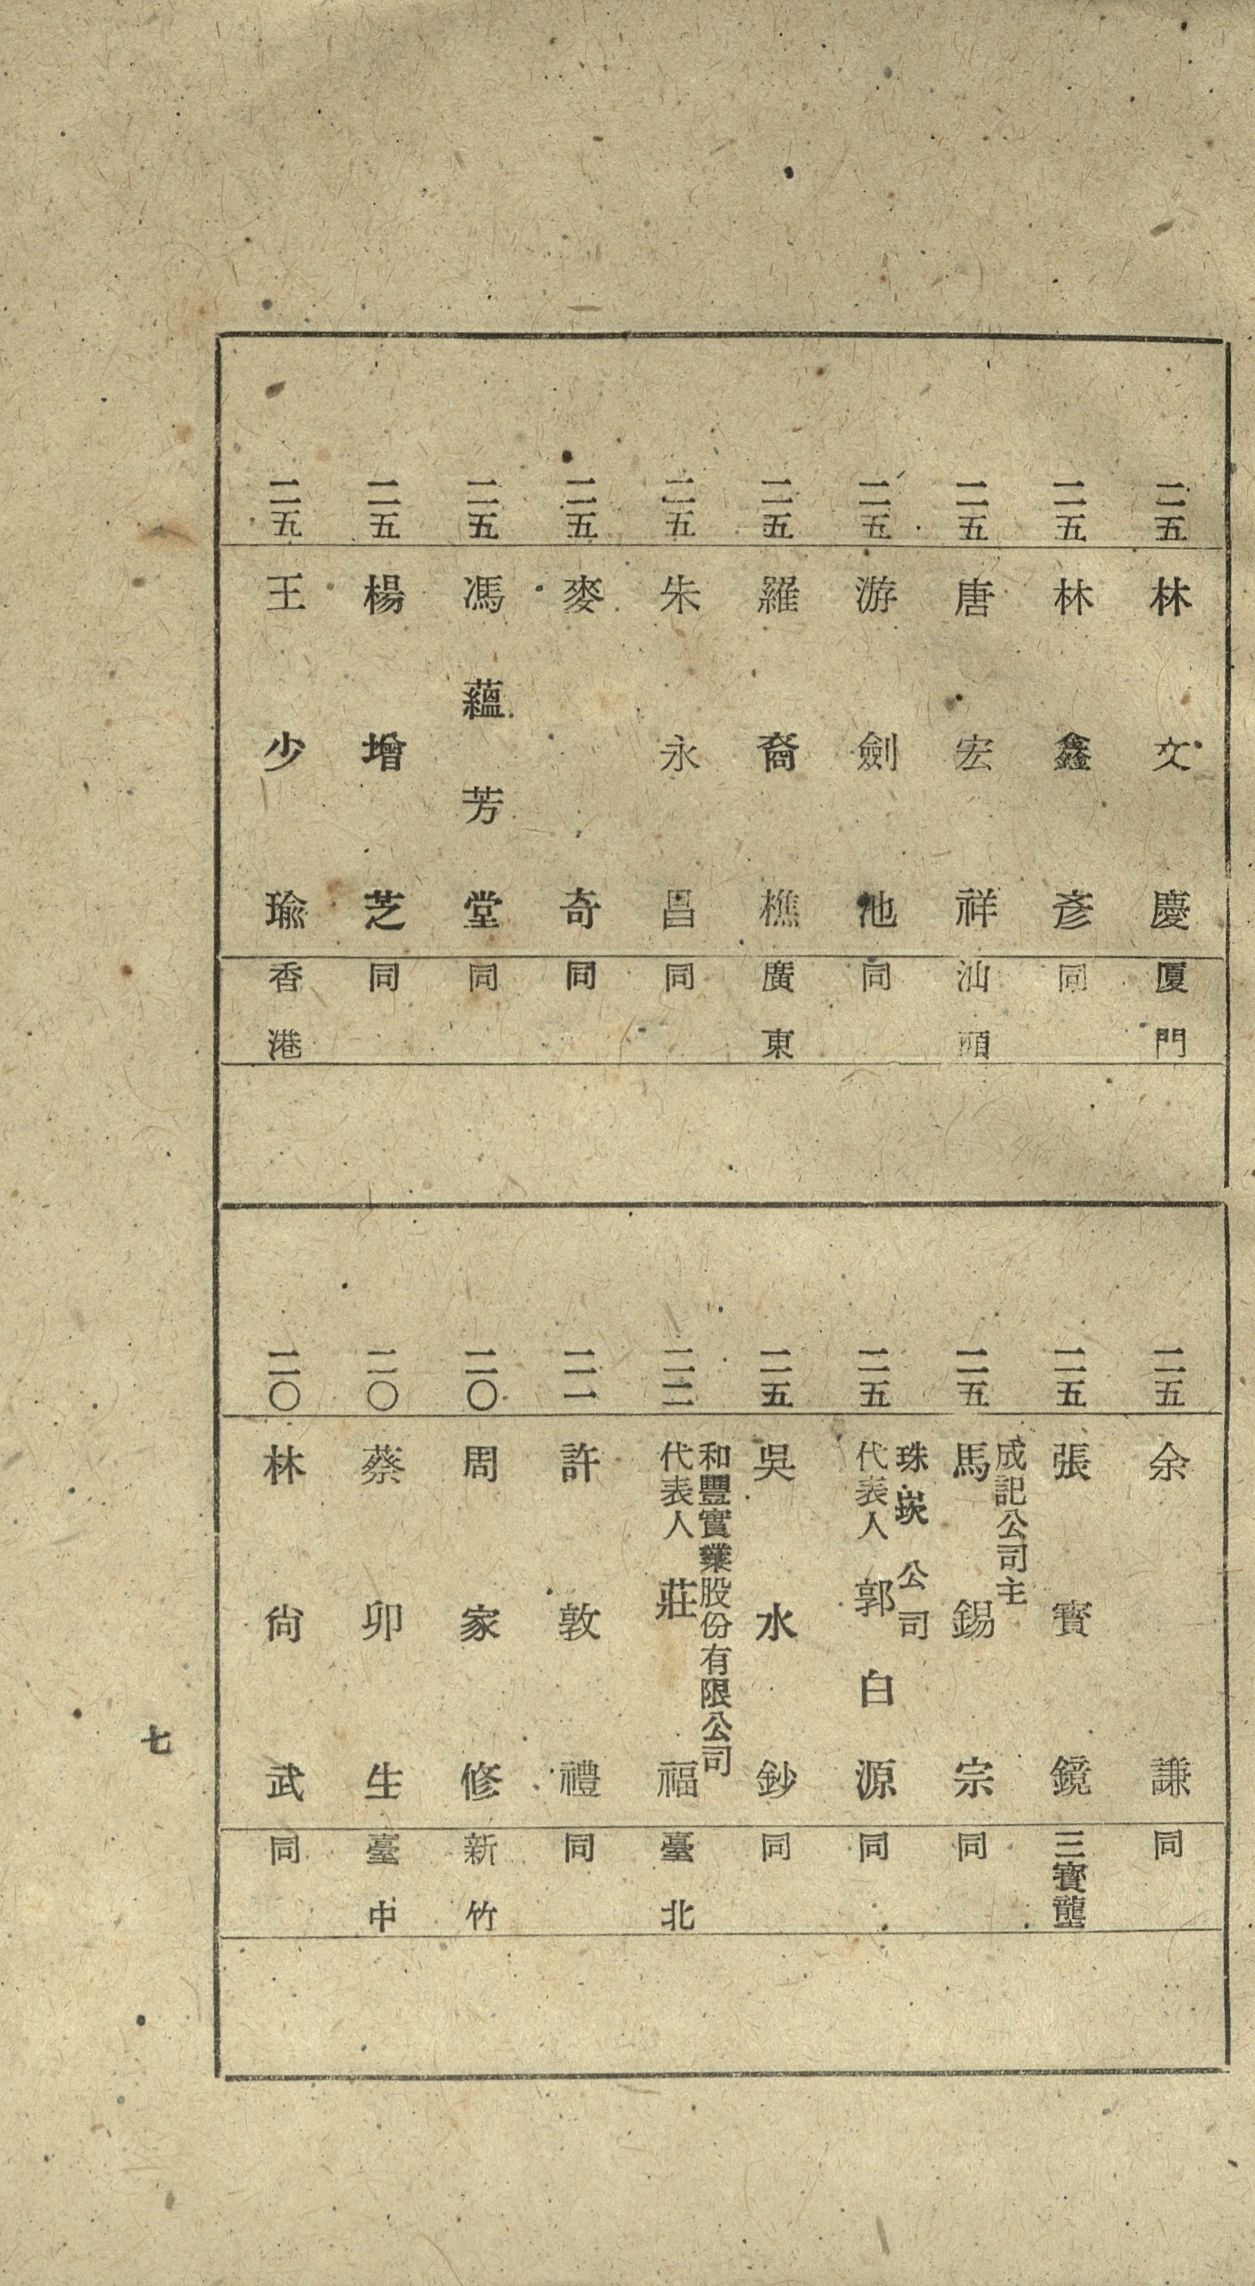 二五 林文慶 厦門
二五 林鑫彥 同
二五 唐宏祥 汕頭
二五 游劍池 同
二五 羅裔樵 廣東
二五 朱永昌 同
二五 麥奇 同
二五 馮蘊芳堂 同
二五 楊增芝 同
二五 王少瑜 香港
二五 余謙 同
二五 張寶鏡 三寶壟
成記公司主
二五 馬錫宗 同
珠崁公司
二五 代表人 郭白源 同
二五 吳水鈔 同
和豐實業股份有限公司
二二 代表人 莊福 臺北
二一 許敦禮 同
二〇 周家修 新竹
二〇 蔡卯生 臺中
二〇 林尙武 同
七